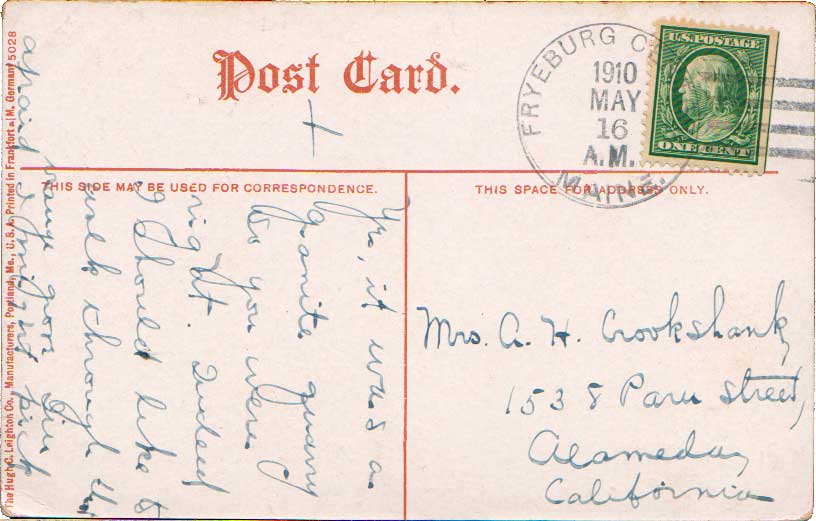 Post Card.
FRYEBURG C
1910
MAY
16
A.M.
MAINE.
U.S. POSTAGE
ONE CENT
THIS SIDE MAY BE USED FOR CORRESPONDENCE.
THIS SPACE FOR ADDRESS ONLY.
Yes, it was a
granite quarry
so you were
right. Indeed
I should like to
walk through that
orange grove. I'm
afraid I might pick
Mrs. A. H. Crookshank,
1538 Paru Street,
Alameda,
California
The Hugh C. Leighton Co., Manufacturers, Portland, Me., U. S. A. Printed in Frankfort a/M. Germany 5028